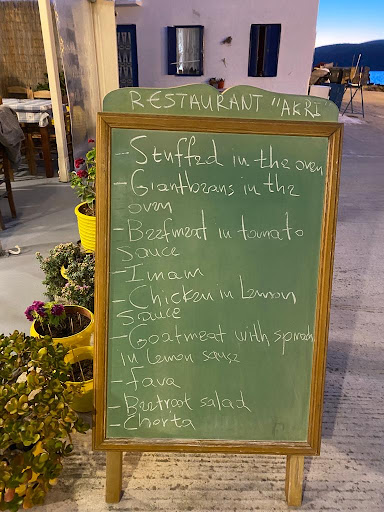 RESTAURANT "AKRI
- Stuffed in the oven
- Giantbeans in the
oven
- Beefmeat in tomato
sauce
- Imam
- Chicken in Lemon
Sauce
- Goatmeat with spinach
in lemon sause
- fava
- Beetroot salad
- Chorta